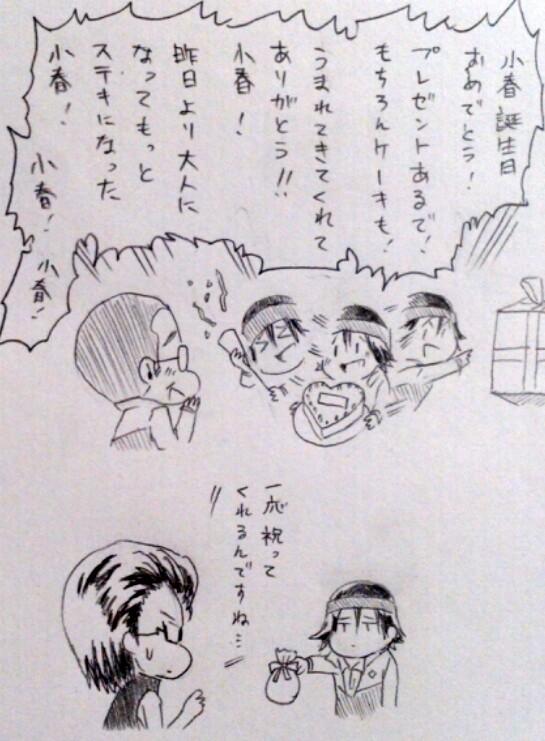 小春誕生日
おめでとう!
プレゼントあるで!
もちろんケーキも!
うまれてきてくれて
ありがとう!!
小春!
昨日より大人に
なってもっと
ステキになった
小春!
小春!
小春!
一応祝って
くれるんですね…